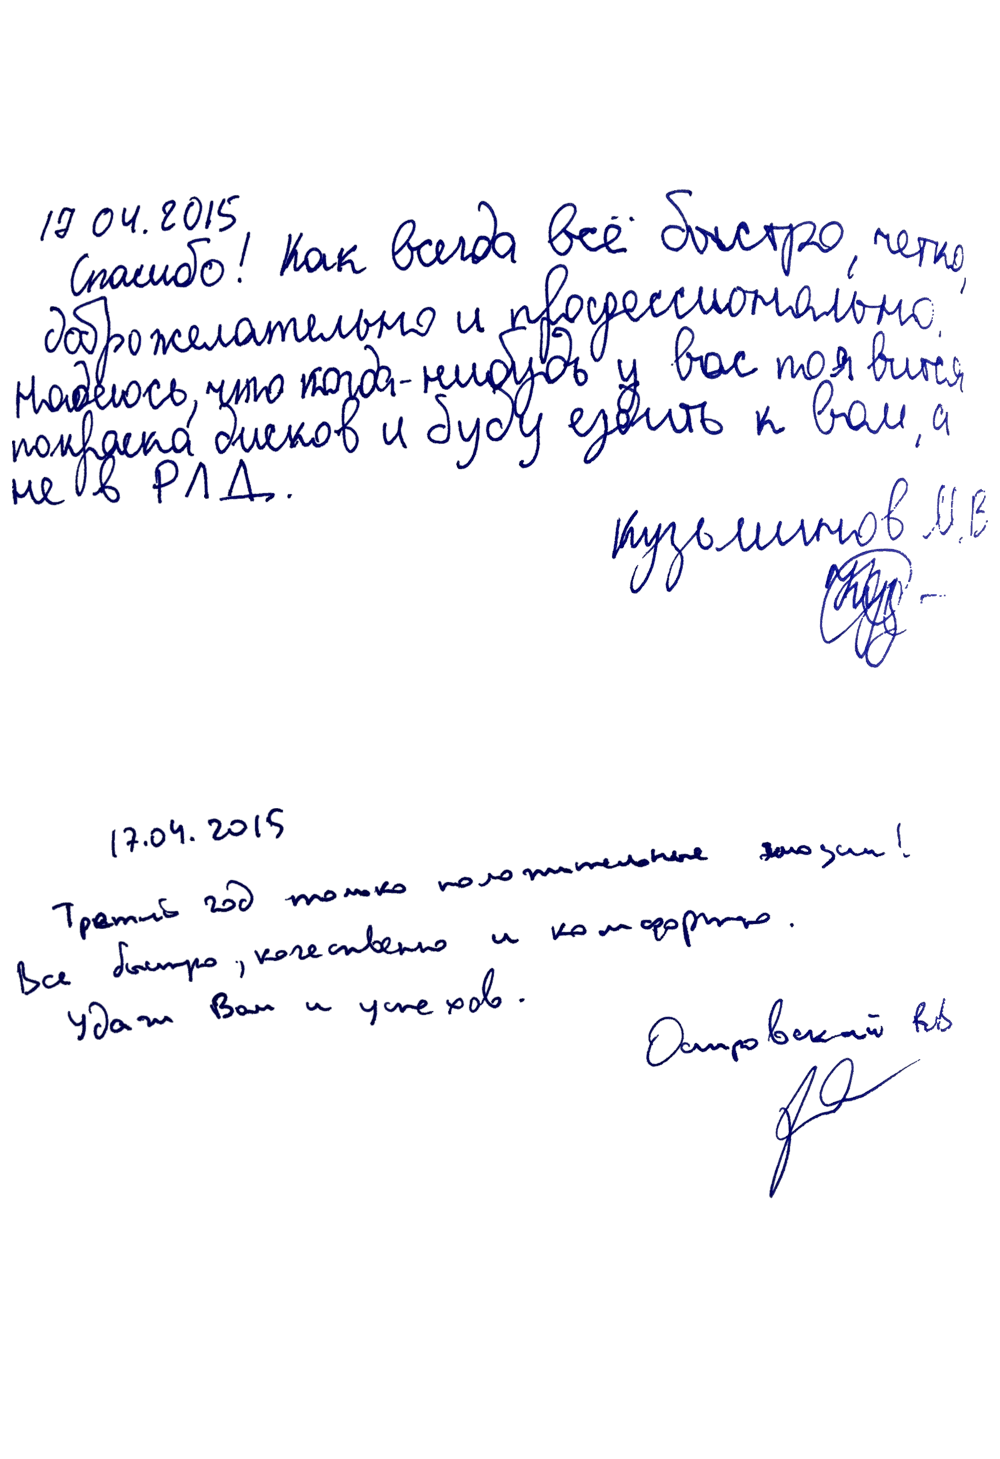 17 04.2015
Спасибо! Как всегда всё быстро, четко,
доброжелательно и профессионально.
Надеюсь, что когда-нибудь у вас появится
покраска дисков и буду ездить к вам, а
не в РЛД.
Кузьминов М.В
17.04.2015
Третий год только положительные эмоции!
Все быстро, качественно и комфортно.
Удачи Вам и успехов.
Островский